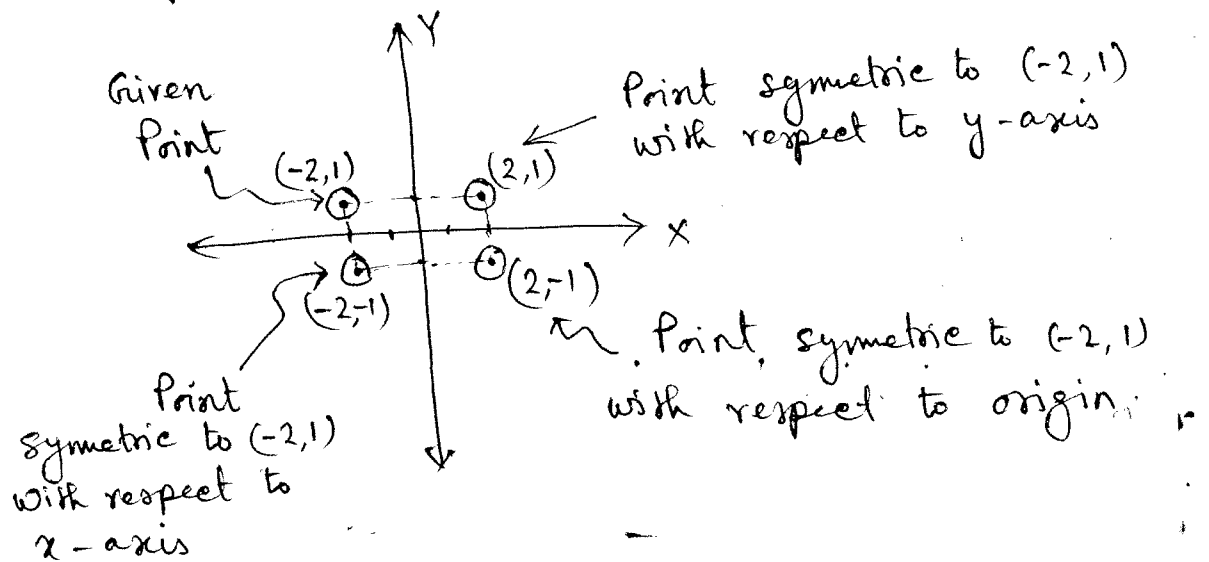 Y
Given
Point
(-2,1)
Point symmetric to (-2,1)
with respect to y-axis
(2,1)
X
(-2,-1)
(2,-1)
Point symmetric to (-2,1)
with respect to origin.
Point
symmetric to (-2,1)
with respect to
x-axis